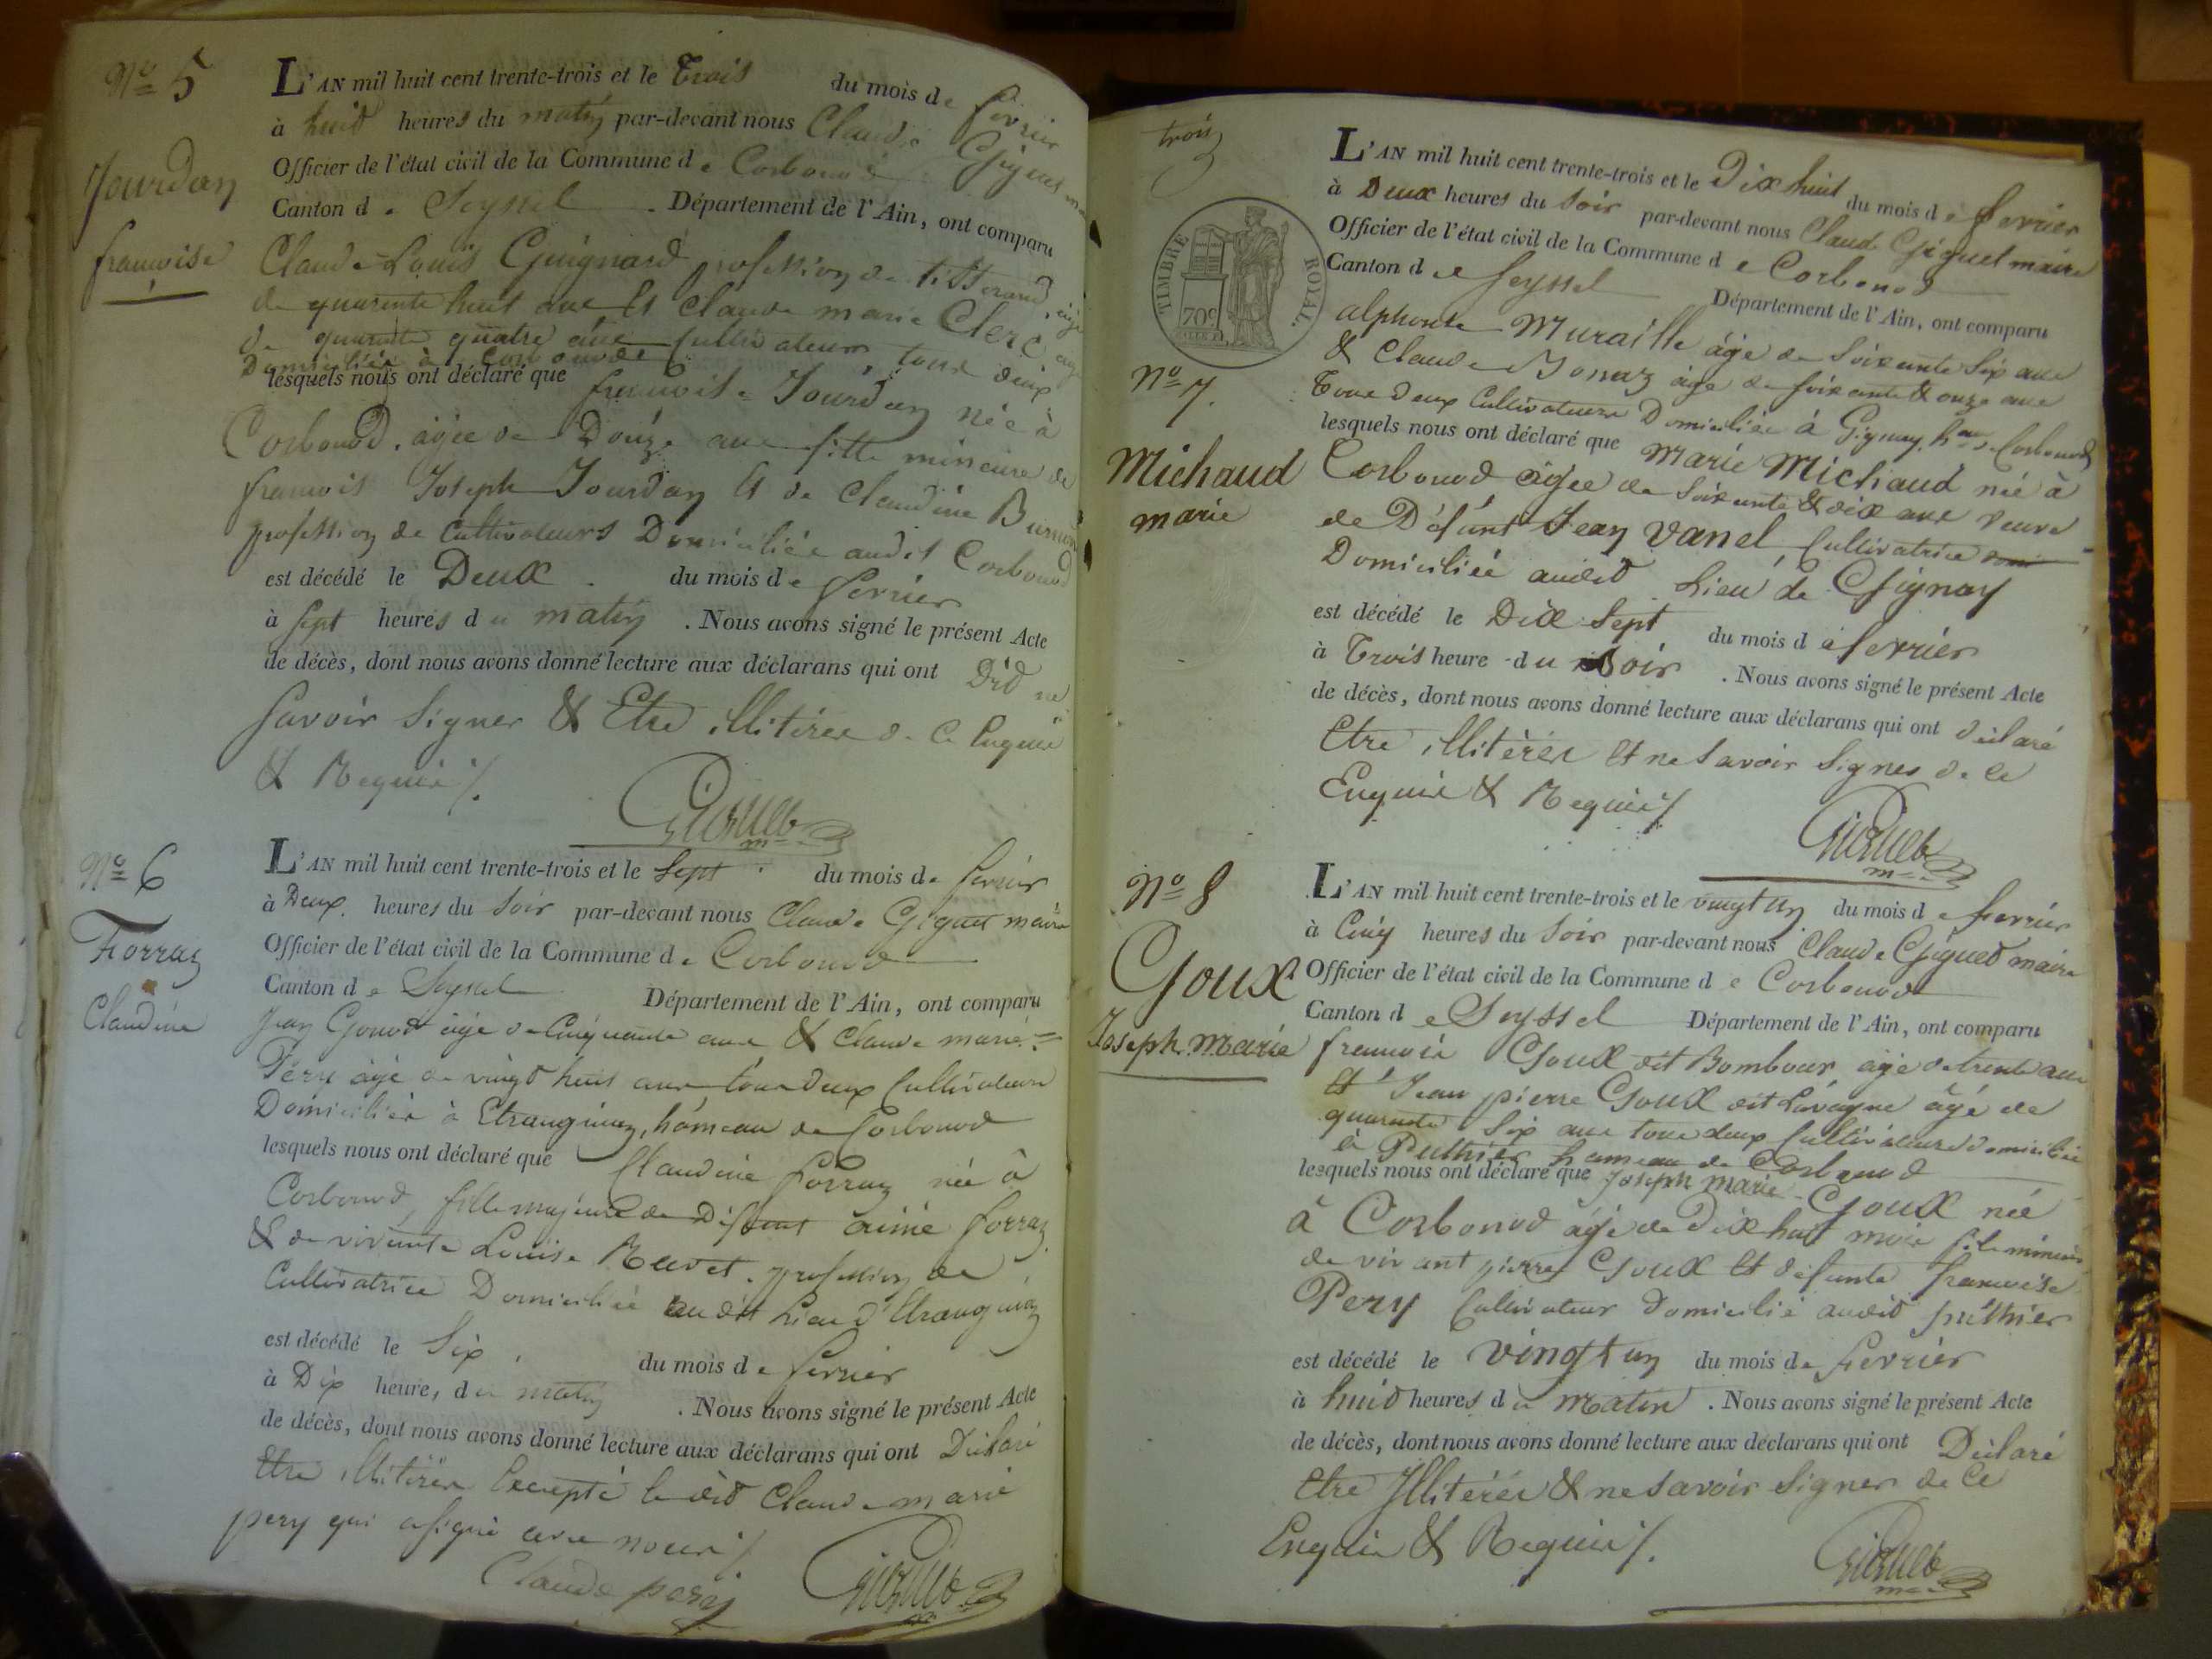 No 5
Jourdan
francoise
L'AN mil huit cent trente-trois et le Trois du mois de fevrier
à huit heures du matin par-devant nous Claude Giguet
Officier de l'état civil de la Commune de Corbonod
Canton de Seyssel . Département de l'Ain, ont comparu
Claude Louis Guignard profession de tisserand agé
de quarante huit ans Et Claude marie Clerc agé
de quarante quatre ans Cultivateurs tous deux
Domiciliés à Corbonod
lesquels nous ont déclaré que francoise Jourdan née à
Corbonod, agée de Douze ans fille mineure de
francois Joseph Jourdan Et de Claudine
profession de Cultivateurs Domiciliée audit Corbonod
est décédé le Deux . du mois de fevrier
à sept heures du matin . Nous avons signé le présent Acte
de décès, dont nous avons donné lecture aux déclarans qui ont Dit ne
savoir Signer & Etre illitérés de Ce Enquis
& Requis /.
Giguet
No 6
Forraz
Claudine
L'AN mil huit cent trente-trois et le Sept du mois de fevrier
à Deux heures du Soir par-devant nous Claude Giguet maire
Officier de l'état civil de la Commune de Corbonod
Canton de Seyssel Département de l'Ain, ont comparu
Jean Gonod agé de Cinquante ans & Claude marie =
Péry agé de vingt huit ans tous deux Cultivateurs
Domiciliés à Etranginaz, hameau de Corbonod
lesquels nous ont déclaré que Claudine forraz née à
Corbonod, fille majeure de Défunt aimé forraz
& de vivante Louise Revet profession de
Cultivatrice Domiciliée au dit Lieu d'Etranginaz
est décédé le Six du mois de fevrier
à Dix heures du matin . Nous avons signé le présent Acte
de décès, dont nous avons donné lecture aux déclarans qui ont Déclaré
Etre illitérés Excepté le dit Claude marie
pery qui a signé avec nous /.
Claude pery
Giguet
trois
TIMBRE ROYAL
70c
No 7.
Michaud
marie
L'AN mil huit cent trente-trois et le Dix huit du mois de fevrier
à Deux heures du Soir par-devant nous Claude Giguet maire
Officier de l'état civil de la Commune de Corbonod
Canton de Seyssel Département de l'Ain, ont comparu
alphonse Muraille âgé de Soixante Six ans
& Claude Bonaz âgé de soixante & onze ans
Tous Deux Cultivateurs Domiciliés à Gignay, hau de Corbonod
lesquels nous ont déclaré que Marie Michaud née à
Corbonod agée de Soixante & dix ans veuve
de Défunt Jean Vanel, Cultivatrice
Domiciliée audit Lieu de Gignay
est décédé le Dix Sept du mois de fevrier
à Trois heure du Soir . Nous avons signé le présent Acte
de décès, dont nous avons donné lecture aux déclarans qui ont déclaré
Etre illitérés Et ne Savoir Signer de Ce
Enquis & Requis /.
Giguet
No 8
Goux
Joseph Marie
L'AN mil huit cent trente-trois et le vingt un du mois de fevrier
à Cinq heures du Soir par-devant nous Claude Giguet maire
Officier de l'état civil de la Commune de Corbonod
Canton de Seyssel Département de l'Ain, ont comparu
francois Goux dit Bombour agé de trente ans
Et Jean pierre Goux dit Lavagne âgé de
quarante Six ans tous deux Cultivateurs domiciliés
à Puthier hameau de Corbonod
lesquels nous ont déclaré que Joseph Marie Goux née
à Corbonod agé de Dix huit mois fils mineur
de vivant pierre Goux Et défunte francoise
Pery Cultivateur Domicilié audit puthier
est décédé le vingt un du mois de fevrier
à huit heures du matin . Nous avons signé le présent Acte
de décès, dont nous avons donné lecture aux déclarans qui ont Déclaré
Etre Illitérés & ne savoir Signer de Ce
Enquis & Requis /.
Giguet